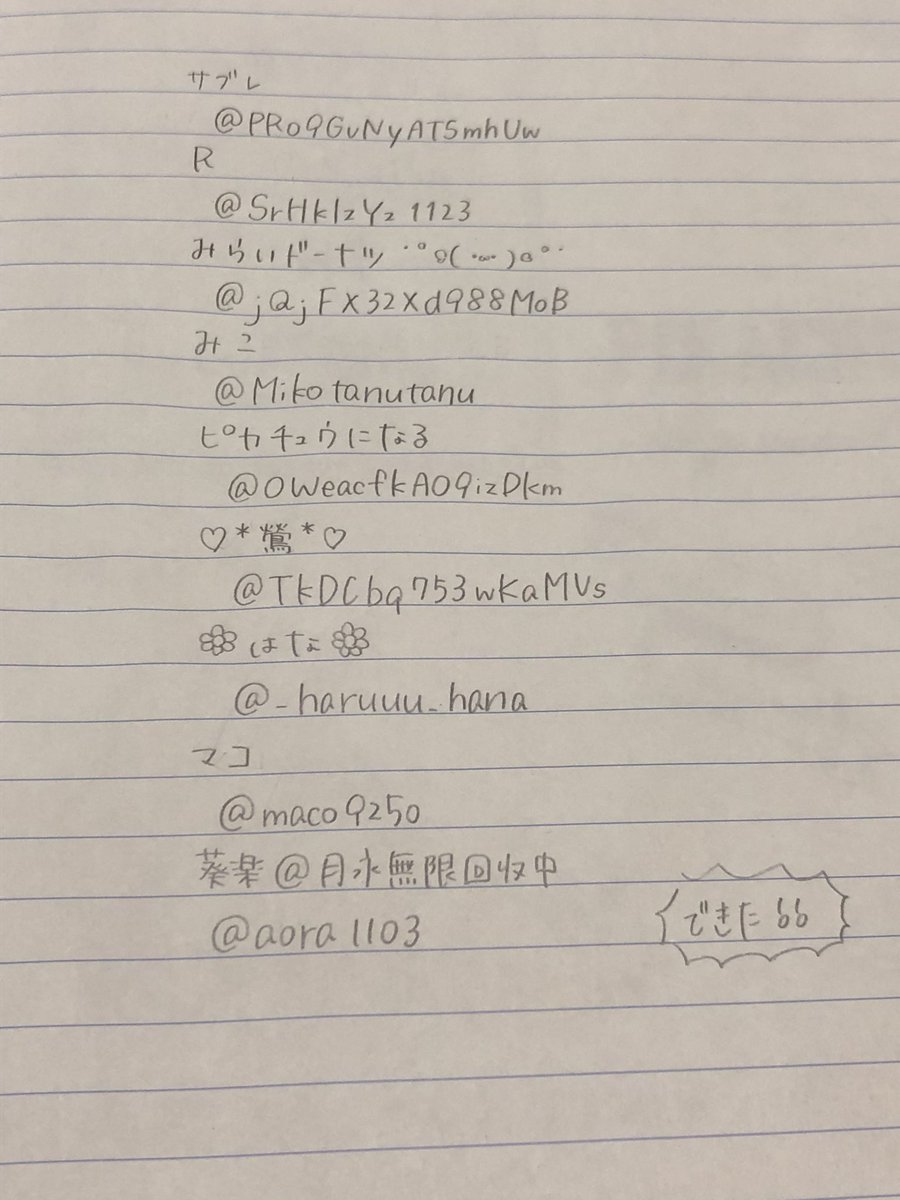 サブレ
@PRo9GvNyAT5mhUw
R
@SrHklzYz1123
みらいドーナツ ˙°ʚ(･ω･)ɞ°˙
@jQjFX32Xd988MoB
みこ
@Mikotanutanu
ピカチュウになる
@OWeacfkAO9izDkm
♡*鶯*♡
@TkDCbq753wKaMVs
❀はな❀
@_haruuu_hana
マコ
@maco9250
葵楽@月氷無限回収中
@aora1103
できた66